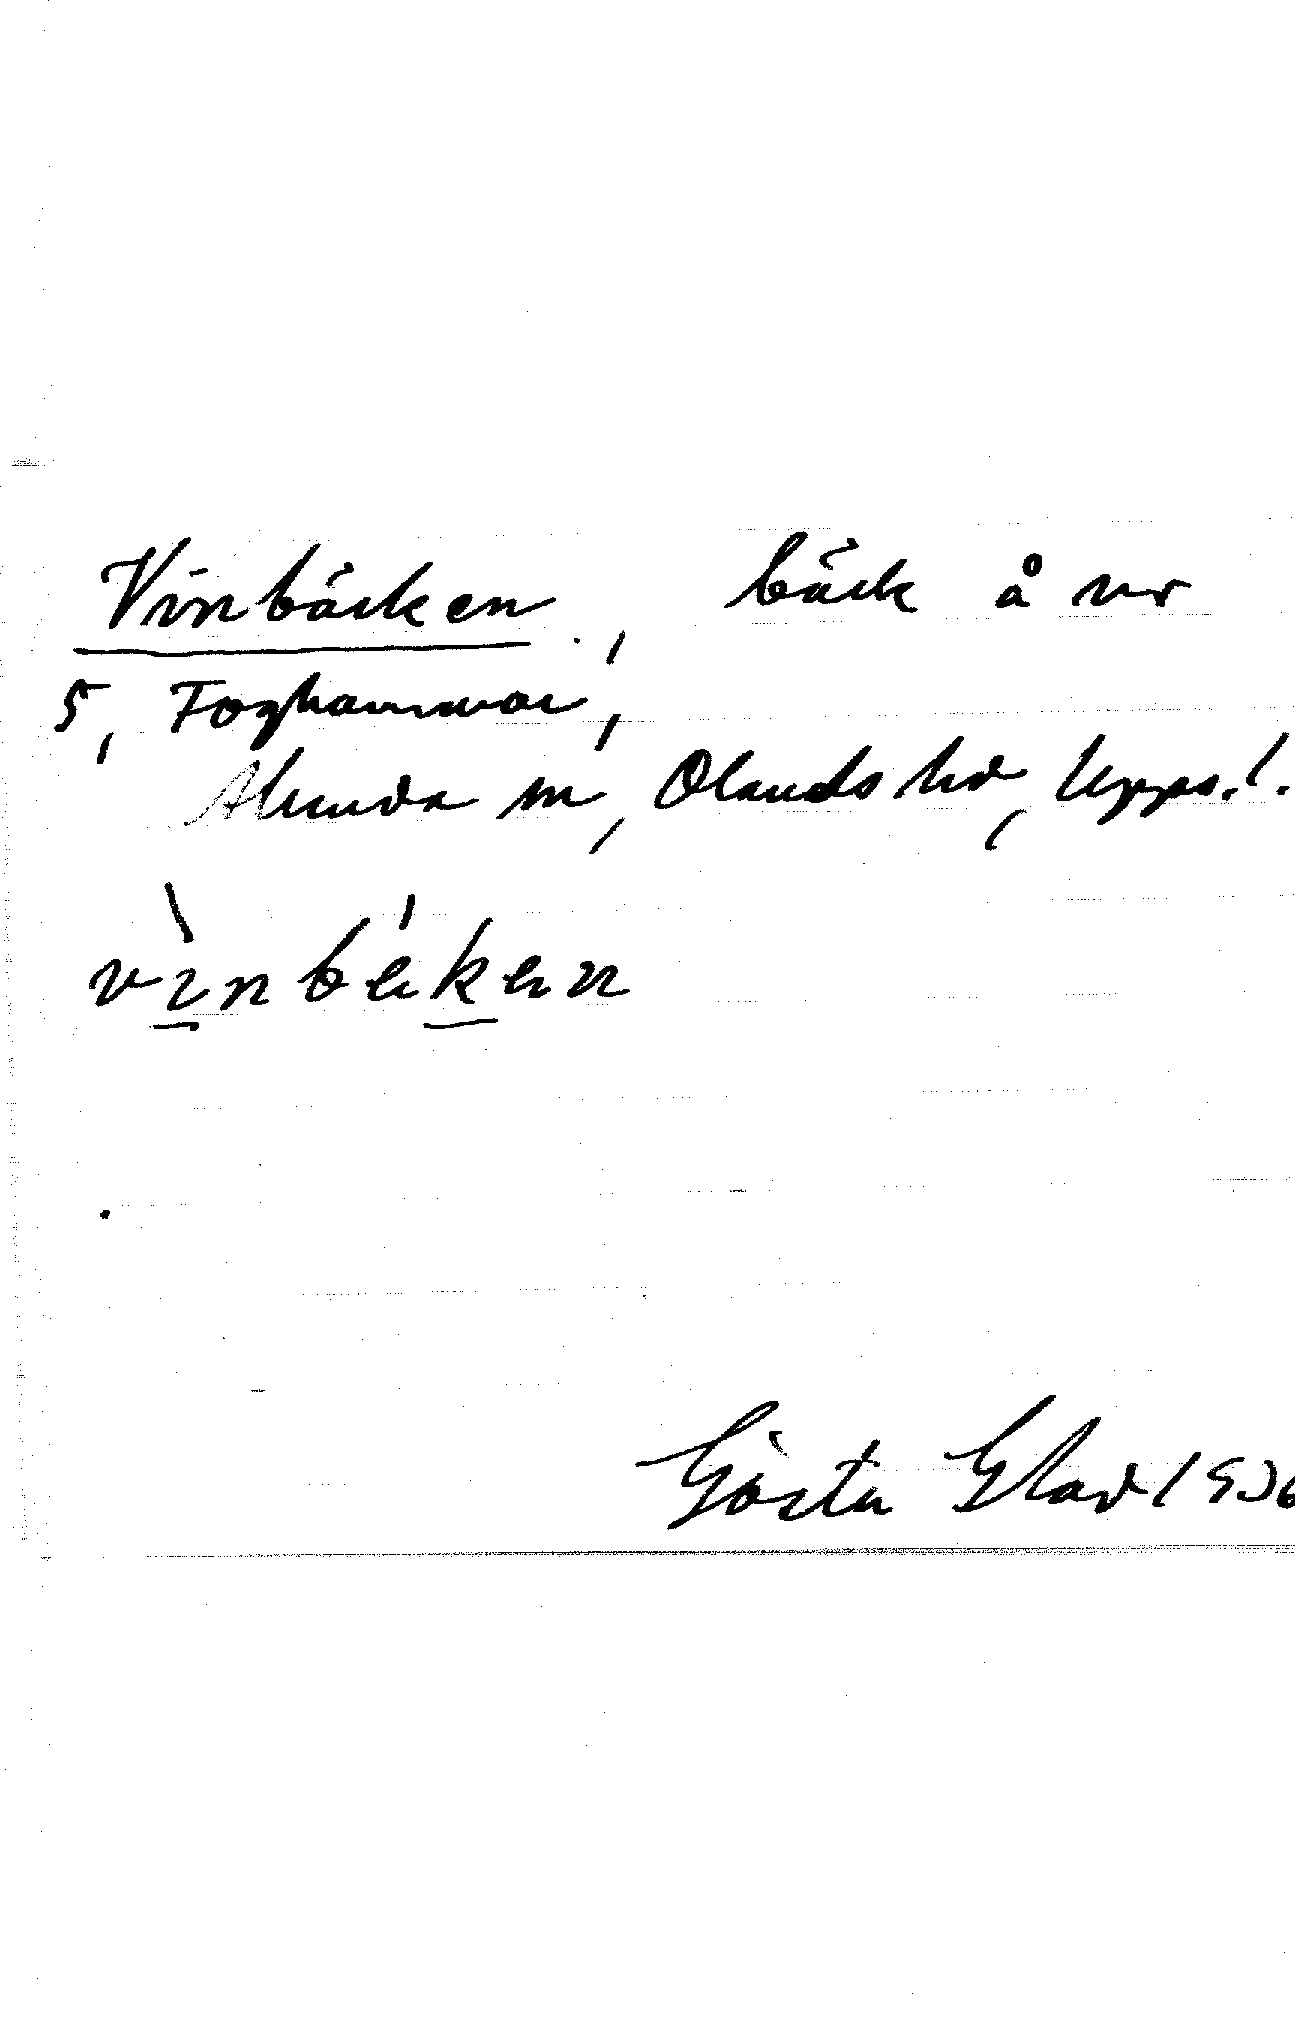 Vinbäcken, bäck å nr
5, Foghammar,
Alunda sn, Olands hd, Upps.l.
vìnbékän
Gösta Glad 1936